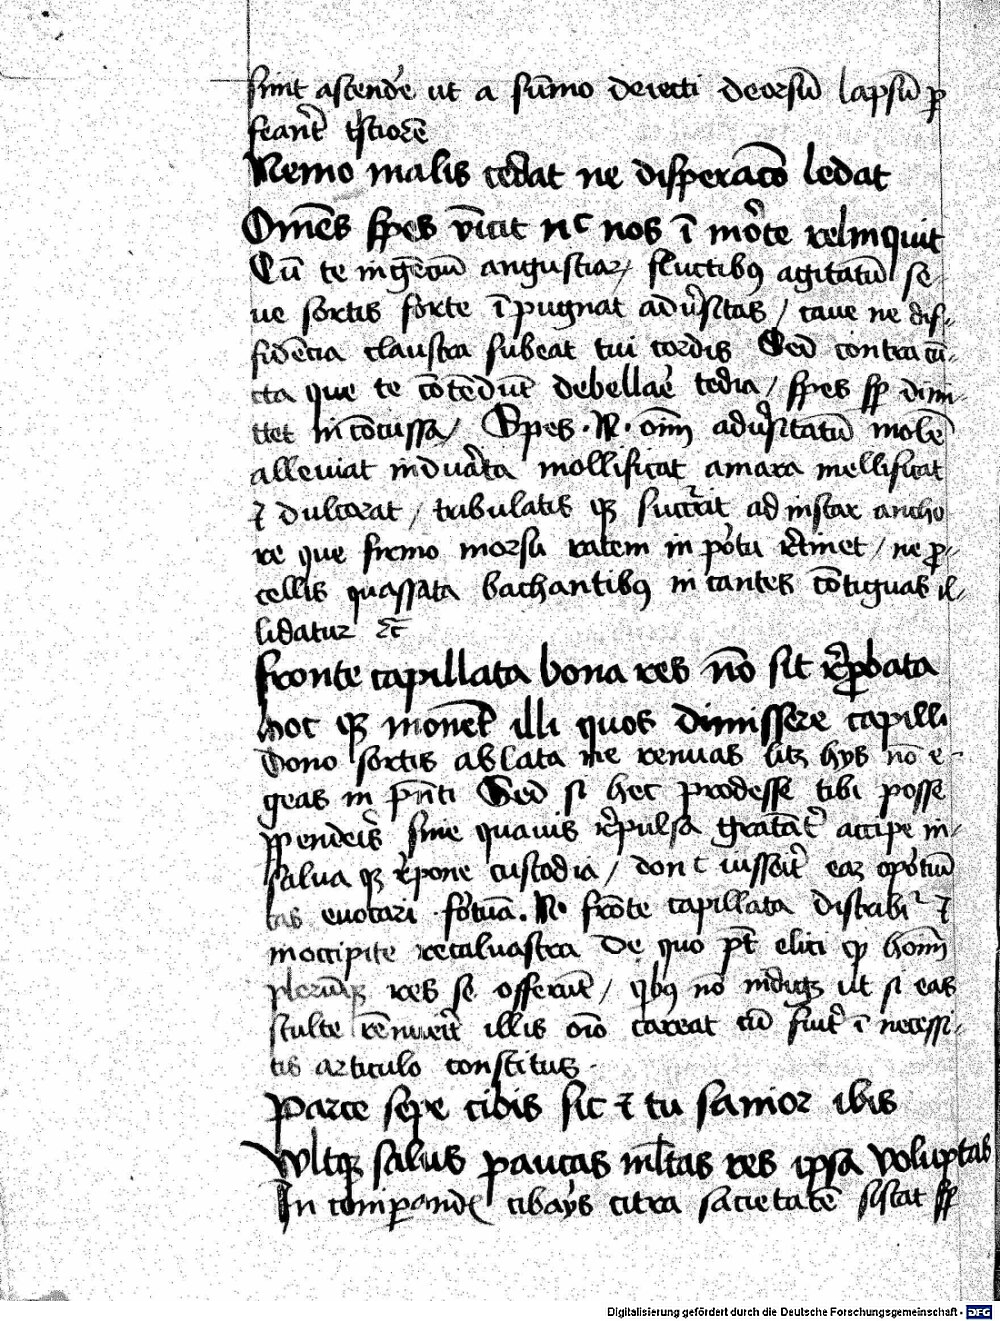 sint ascende᷑ ut a su̅mo deiecti deorsu̅ lapsu̅ ꝑ
feant᷑ tʼstiore̅
Nemo malis cedat ne disperac̅o ledat
Om̅es spes vi̅cit nc nos i̅ mo᷑te relinquit
Cu̅ te ingr̅ecu̅ angustiaꝝ / fluctibꝫ agitatu̅ se
ue sortis forte i̅pugnat adu᷑sitas / caue ne dif
fide̅cia claustra subeat tui cordis Sed contra cu̅
cta que te co̅te̅du̅t debellae᷑ tedia / spes sꝑ dimi
ttet inco̅cussa / Spes · N · oi̅m adu᷑sitatu̅ mole̅
alleuiat indua᷑ta mollificat amara mellificat
⁊ dulcorat / tribulatis qꝫ succr᷑it ad instar ancho
re que firmo morsu ratem in po᷑tu r᷑tinet / ne ꝓ
cellis quassata bachantibꝫ in cautes co̅tiguas il
lidatur ⁊c̅
Fronte capillata bona res no̅ sit r᷑ꝓbata
hoc qꝫ monet᷑ illi quos dimissere capilli
Dono sortis ablata ne renuas licꝫ hys no̅ e
geas in pn̅ti Sed si hec prodesse tibi posse
ꝑpenderis᷑ sine quauis r᷑pulsa grata̅t᷑ accipe in
salua qꝫ r᷑pone custodia / donc iusserit᷑ eaꝝ opo᷑tuni̅
tas euocari · fo᷑tu̅a · N · fro̅te capillata describi᷑ ⁊
in occipite recaluastra De quo pt̅ elici qꝫ homi̅
pleru̅qꝫ res se offeru̅t / qibꝫ no̅ indigꝫ ut si eas
stulte re̅nuerit᷑ illis oi̅o careat cu̅ fuit᷑ i̅ necessi
tis articulo constitus ·
Parce sepe cibis sic ⁊ tu sanior ibis
Vultqꝫ salus paucas ml̅tas res ipsa voluptas
In comꝑand᷑ cibarys citra sacietate̅ sistat sꝑ
Digitalisierung gefördert durch die Deutsche Forschungsgemeinschaft - DFG